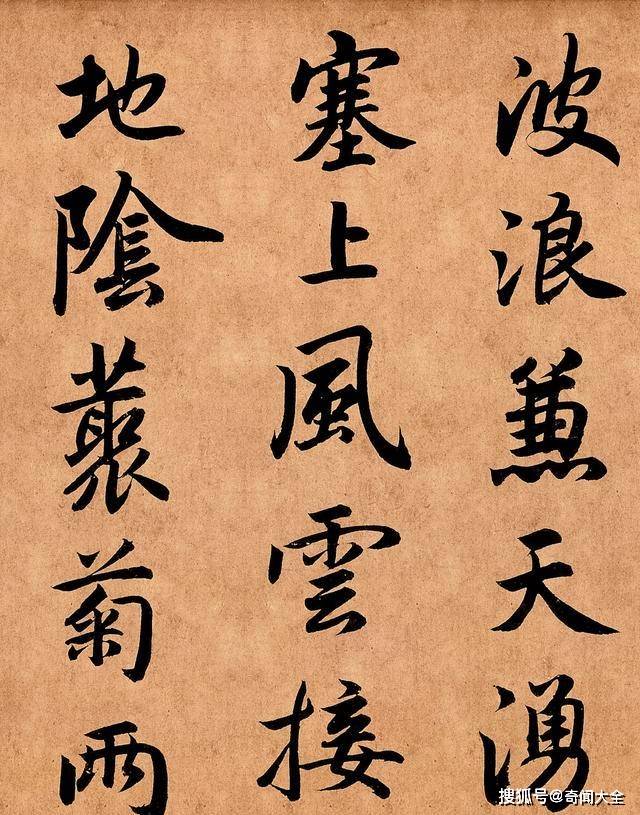 波浪兼天湧
塞上風雲接
地陰藂菊兩
搜狐号@奇闻大全